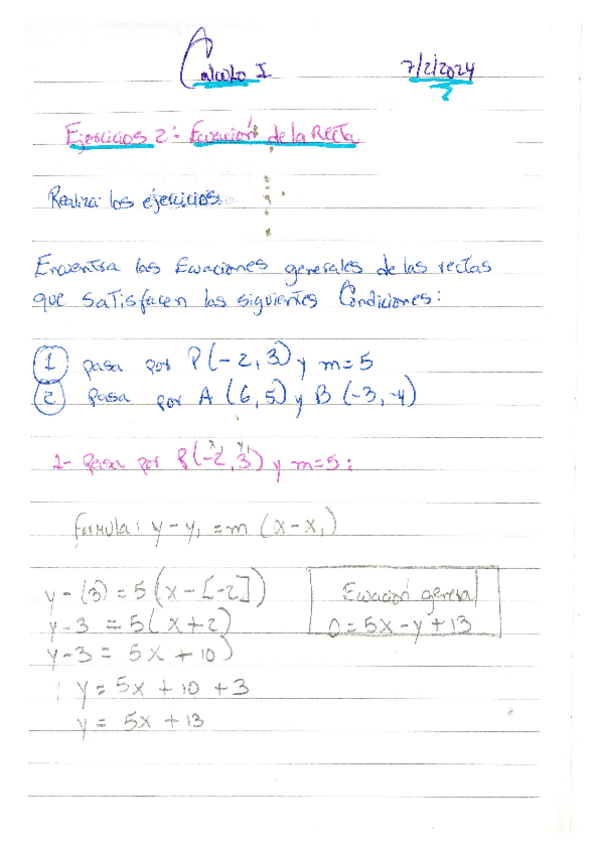 Calculo I 7/2/2024
Ejercicios 2: Ecuación de la Recta
Realiza los ejercicios
Encuentra las Ecuaciones generales de las rectas
que satisfacen las siguientes Condiciones:
1 pasa por P(-2, 3) y m=5
2 pasa por A (6, 5) y B (-3, -4)
1- pasa por P(-2, 3) y m=5:
x₁ y₁
formula: y-y₁ = m (x-x₁)
y-(3) = 5(x-[-2])
Ecuación general
y-3 = 5(x+2)
0=5x-y+13
y-3 = 5x+10)
y=5x+10+3
y= 5x+13